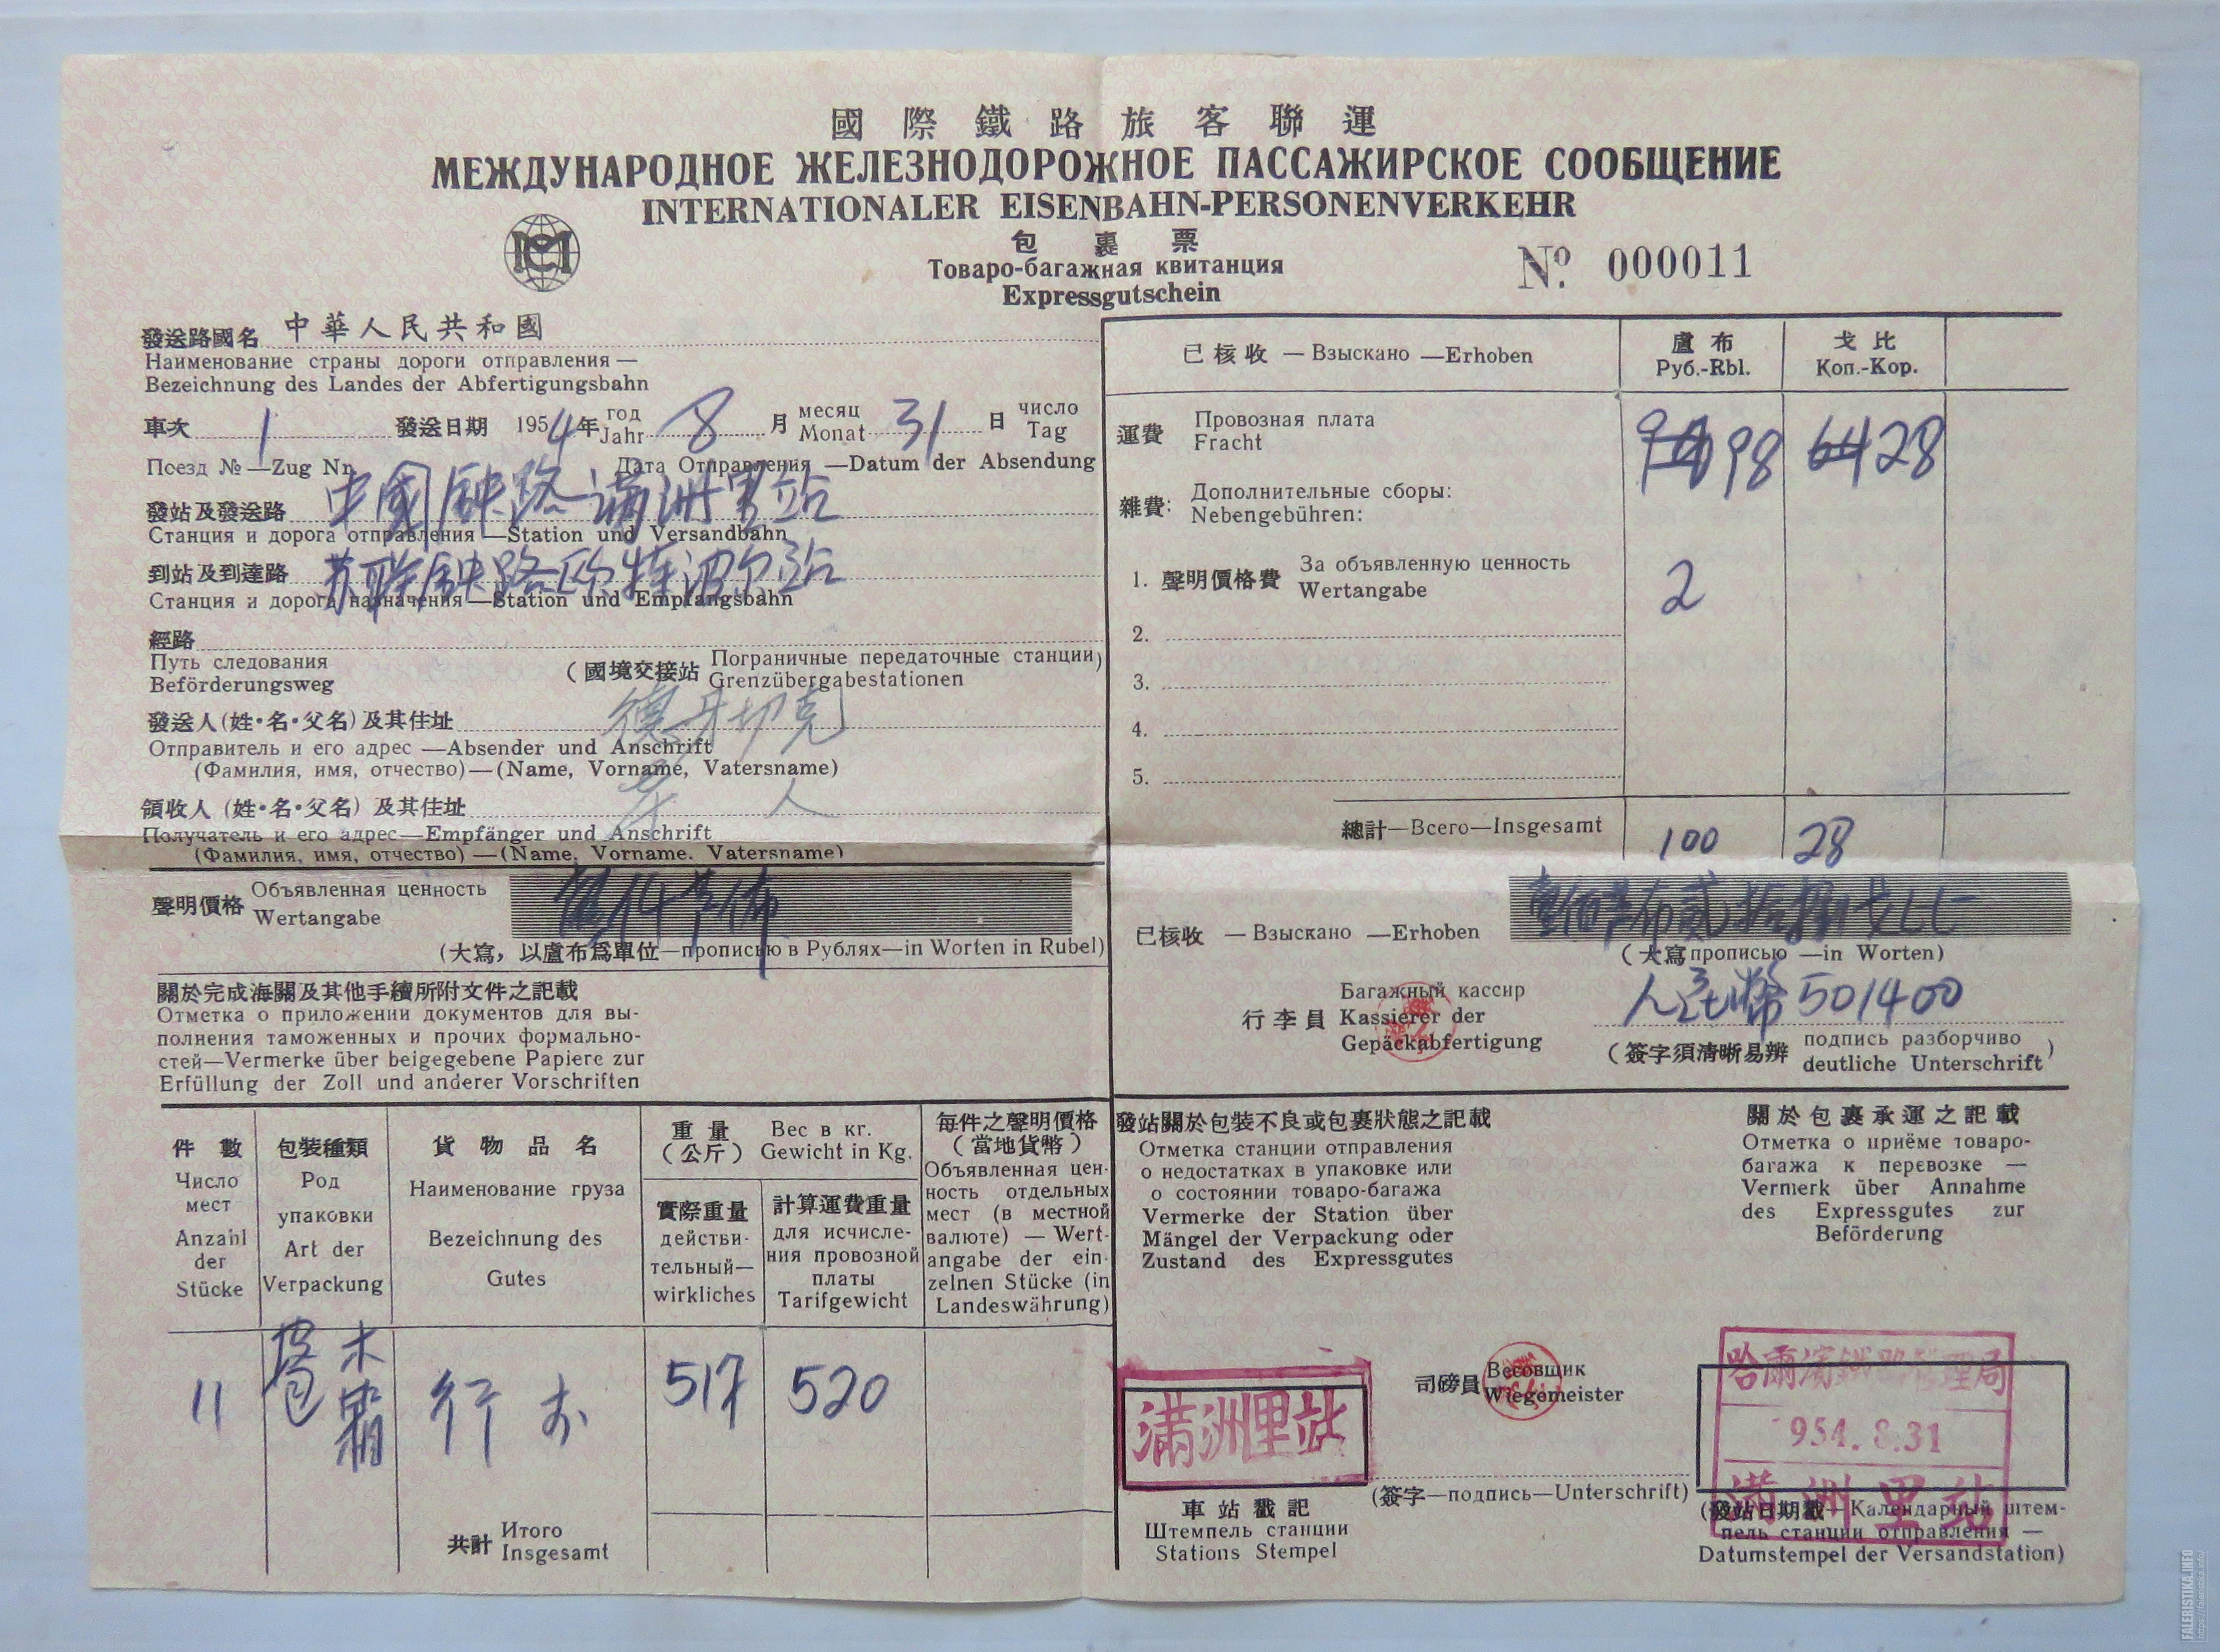 國際鐵路旅客聯運
МЕЖДУНАРОДНОЕ ЖЕЛЕЗНОДОРОЖНОЕ ПАССАЖИРСКОЕ СООБЩЕНИЕ
INTERNATIONALER EISENBAHN-PERSONENVERKEHR
包裹票
Товаро-багажная квитанция
Expressgutschein
№ 000011
發送路國名 中華人民共和國
Наименование страны дороги отправления —
Bezeichnung des Landes der Abfertigungsbahn
車次 1 發送日期 1954年 год Jahr 8 月 месяц Monat 31 日 число Tag
Поезд № —Zug Nr. Дата Отправления —Datum der Absendung
發站及發送路 中國鉄路满洲里站
Станция и дорога отправления —Station und Versandbahn
到站及到達路 苏联鉄路欧特波尔站
Станция и дорога назначения—Station und Empfangsbahn
經路
Путь следования
Beförderungsweg
(國境交接站 Пограничные передаточные станции)
Grenzübergabestationen
發送人(姓·名·父名)及其住址
Отправитель и его адрес —Absender und Anschrift
(Фамилия, имя, отчество)—(Name, Vorname, Vatersname)
領收人 (姓·名·父名) 及其住址 人
Получатель и его адрес—Empfänger und Anschrift
(Фамилия, имя, отчество) —(Name, Vorname, Vatersname)
聲明價格 Объявленная ценность
Wertangabe
(大寫，以盧布爲單位—прописью в Рублях—in Worten in Rubel)
關於完成海關及其他手續所附文件之記載
Отметка о приложении документов для вы-
полнения таможенных и прочих формально-
стей—Vermerke über beigegebene Papiere zur
Erfüllung der Zoll und anderer Vorschriften
已核收 — Взыскано —Erhoben
盧布
Руб.-Rbl.
戈比
Коп.-Kop.
運費 Провозная плата
Fracht
98 28
雜費: Дополнительные сборы:
Nebengebühren:
1. 聲明價格費 За объявленную ценность
Wertangabe
2
2.
3.
4.
5.
總計—Всего—Insgesamt 100 28
已核收 — Взыскано —Erhoben
(大寫 прописью —in Worten)
行李員 Багажный кассир
Kassierer der
Gepäckabfertigung
人民幣 501400
(簽字須清晰易辨 подпись разборчиво
deutliche Unterschrift)
件數
Число
мест
Anzahl
der
Stücke
包裝種類
Род
упаковки
Art der
Verpackung
貨物品名
Наименование груза
Bezeichnung des
Gutes
重量 (公斤) Вес в кг.
Gewicht in Kg.
實際重量
действи-
тельный—
wirkliches
計算運費重量
для исчисле-
ния провозной
платы
Tarifgewicht
每件之聲明價格
(當地貨幣)
Объявленная цен-
ность отдельных
мест (в местной
валюте) — Wert-
angabe der ein-
zelnen Stücke (in
Landeswährung)
11 木 行李 517 520
共計 Итого
Insgesamt
發站關於包裝不良或包裹狀態之記載
Отметка станции отправления
о недостатках в упаковке или
о состоянии товаро-багажа
Vermerke der Station über
Mängel der Verpackung oder
Zustand des Expressgutes
關於包裹承運之記載
Отметка о приёме товаро-
багажа к перевозке —
Vermerk über Annahme
des Expressgutes zur
Beförderung
满洲里站
車站戳記
Штемпель станции
Stations Stempel
司磅員 Весовщик
Wiegemeister
(簽字—подпись—Unterschrift)
哈爾濱鐵路管理局
954.8.31
满洲里站
(發站日期戳—Календарный штем-
пель станции отправления —
Datumstempel der Versandstation)
FALERISTIKA.INFO